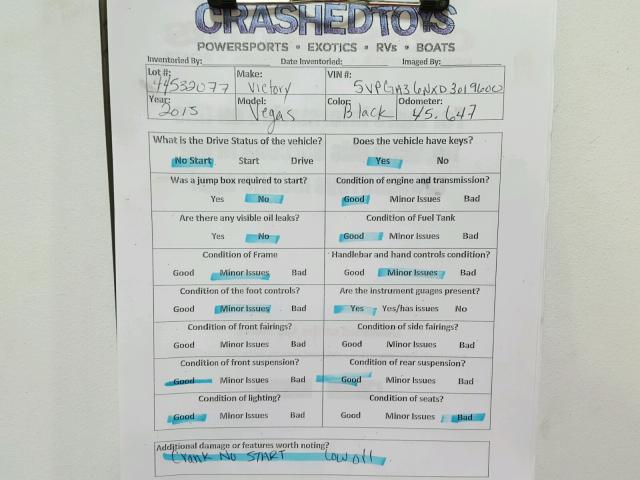 CRASHEDTOYS
POWERSPORTS • EXOTICS • RVs • BOATS
Inventoried By: Date Inventoried: Imaged By:
Lot #: 44532077 Make: Victory VIN #: 5VPGA36NXD3019600
Year: 2015 Model: Vegas Color: Black Odometer: 45,647
What is the Drive Status of the vehicle? Does the vehicle have keys?
No Start Start Drive Yes No
Was a jump box required to start? Condition of engine and transmission?
Yes No Good Minor Issues Bad
Are there any visible oil leaks? Condition of Fuel Tank
Yes No Good Minor Issues Bad
Condition of Frame Handlebar and hand controls condition?
Good Minor Issues Bad Good Minor Issues Bad
Condition of the foot controls? Are the instrument guages present?
Good Minor Issues Bad Yes Yes/has issues No
Condition of front fairings? Condition of side fairings?
Good Minor Issues Bad Good Minor Issues Bad
Condition of front suspension? Condition of rear suspension?
Good Minor Issues Bad Good Minor Issues Bad
Condition of lighting? Condition of seats?
Good Minor Issues Bad Good Minor Issues Bad
Additional damage or features worth noting?
Crank No START Low oil